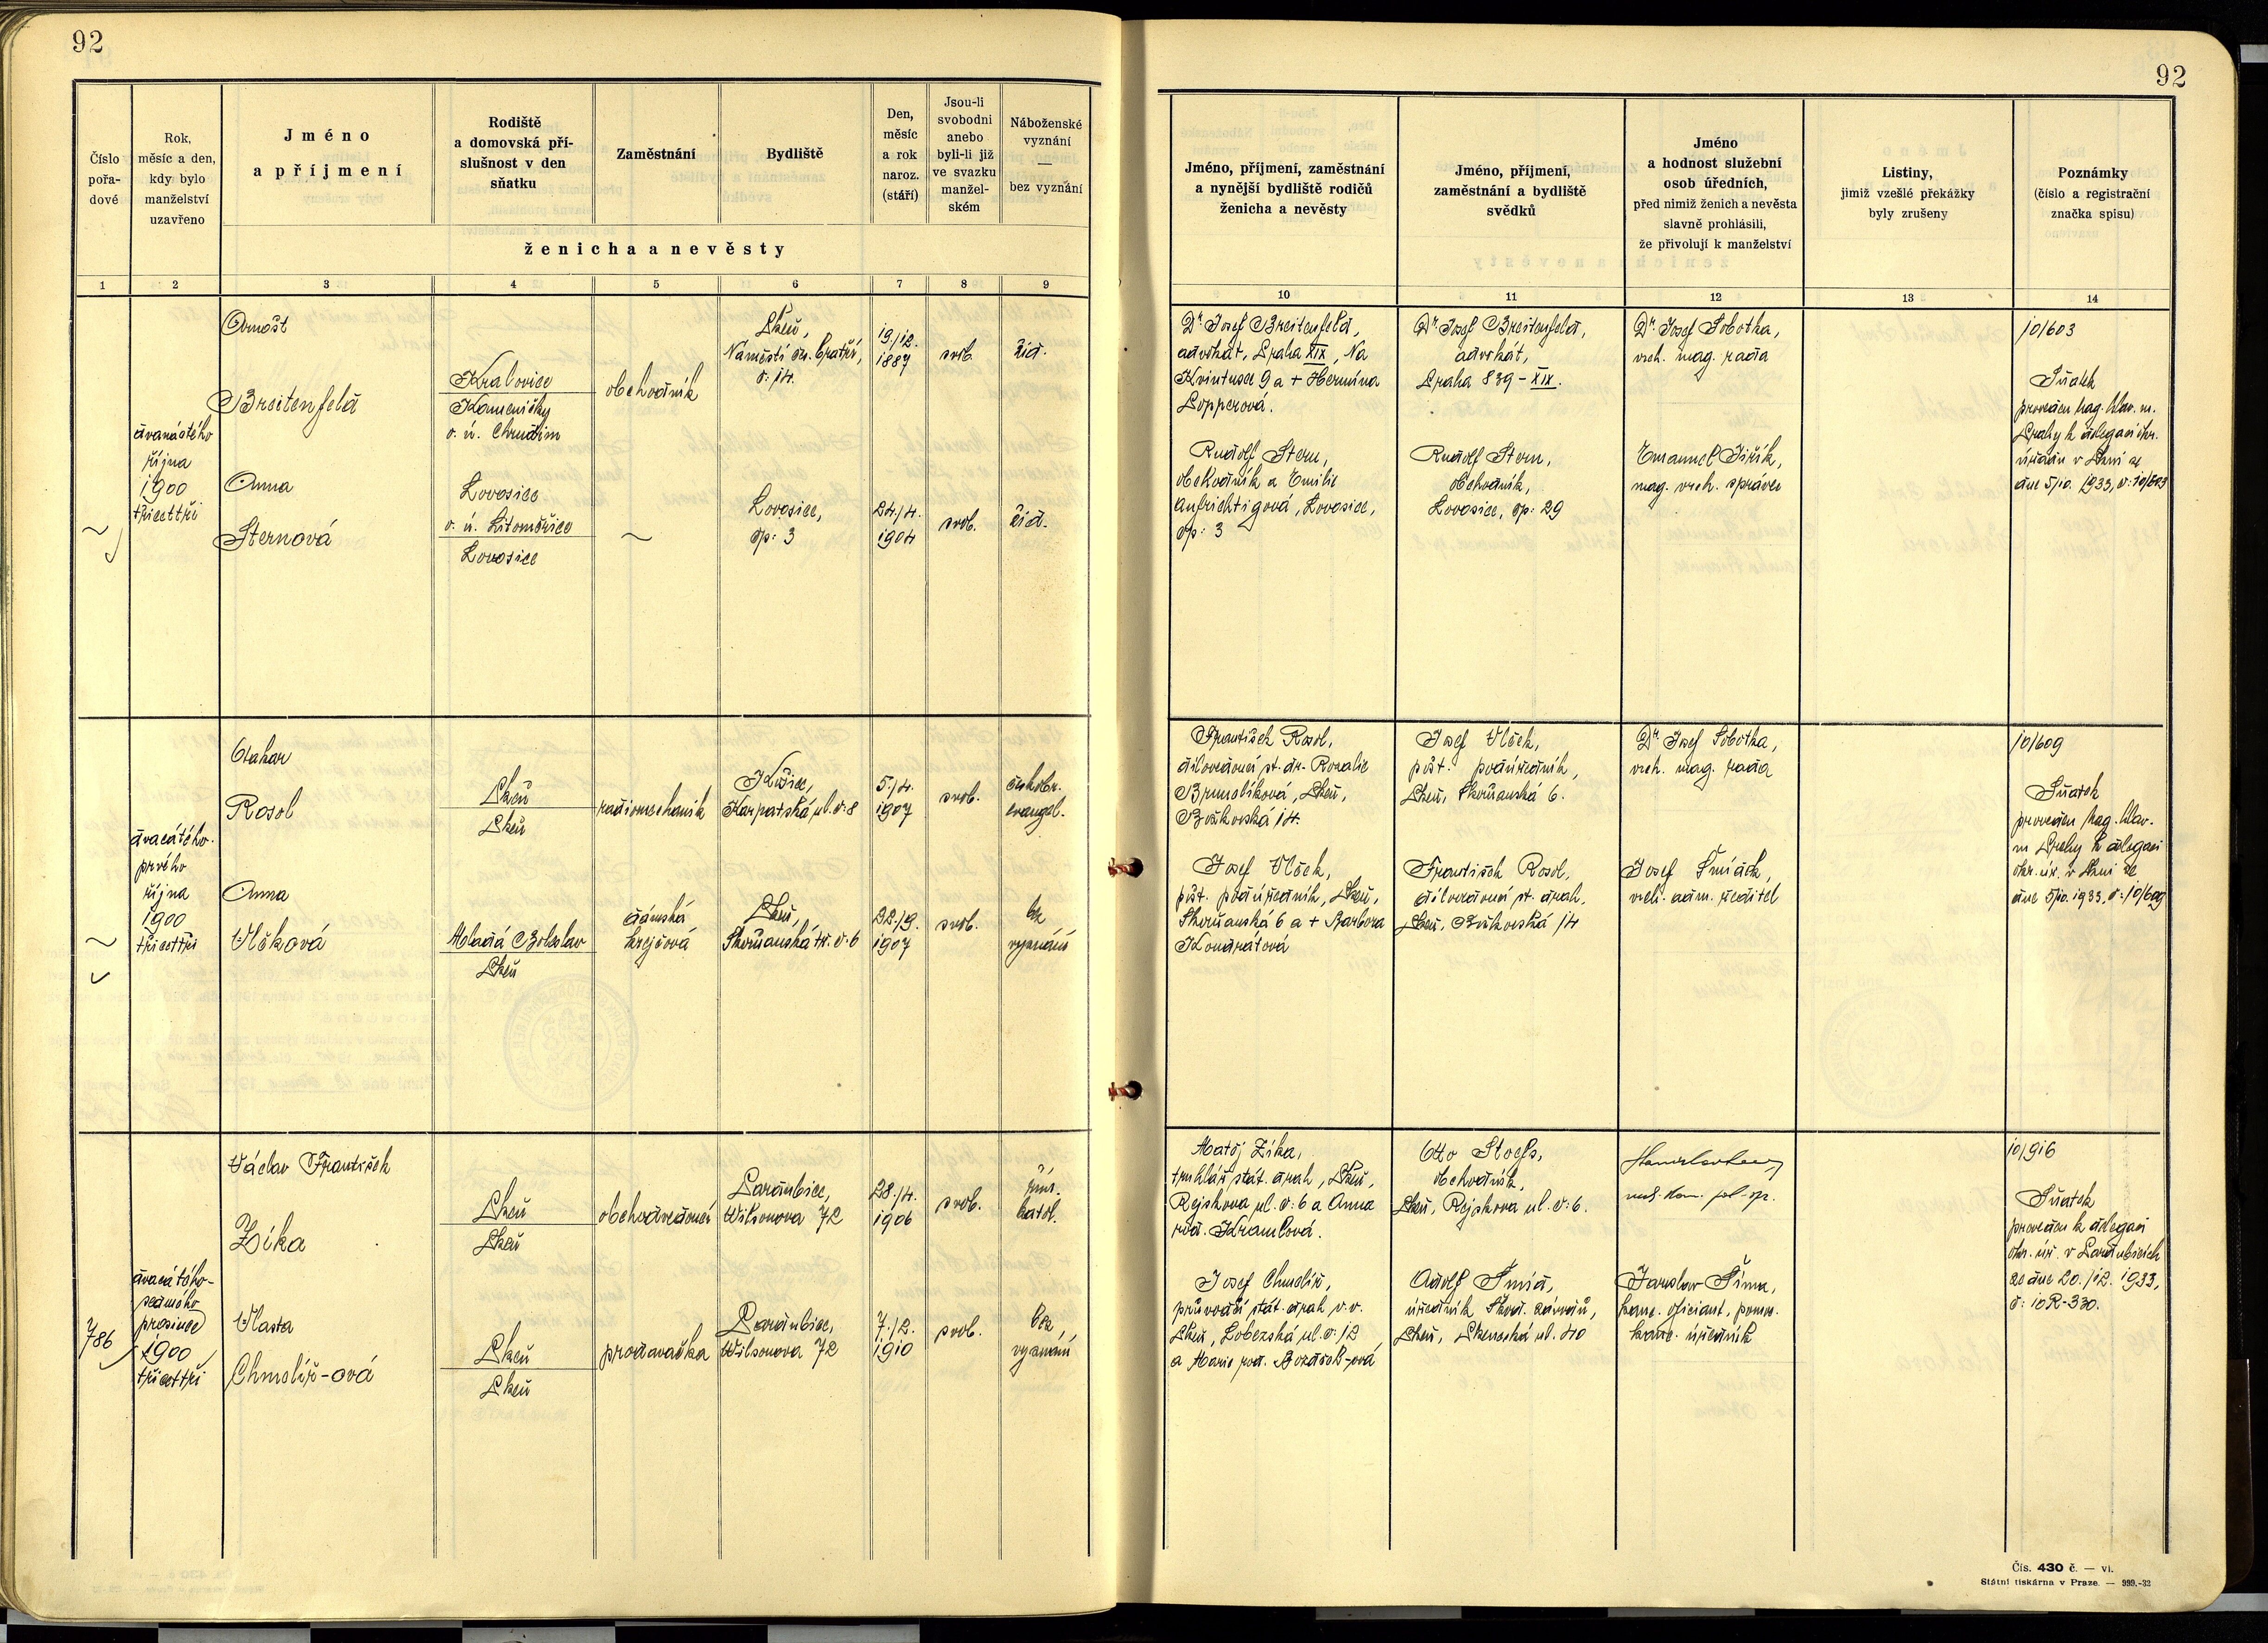 92
Číslo
pořa-
dové
Rok,
měsíc a den,
kdy bylo
manželství
uzavřeno
Jméno
a příjmení
Rodiště
a domovská pří-
slušnost v den
sňatku
Zaměstnání
Bydliště
Den,
měsíc
a rok
naroz.
(stáří)
Jsou-li
svobodni
anebo
byli-li již
ve svazku
manžel-
ském
Náboženské
vyznání
—
bez vyznání
ženicha a nevěsty
1 2 3 4 5 6 7 8 9
dvanáctého
října
1900
třicettři
Arnošt
Breitenfeld
Kralovice
Kameničky
o. ú. Chrudim
obchodník
Plzeň,
Náměstí čs. bratří,
č: 14.
19./12.
1887
svob.
žid.
Anna
Sternová
Lovosice
o. ú. Litoměřice
Lovosice
Lovosice,
čp: 3
24./4.
1904
svob.
žid.
dvacátého-
prvého
října
1900
třicettři
Otakar
Rosol
Plzeň
Plzeň
radiomechanik
Košice,
Karpatská ul. č. 8
5./4.
1907
svob.
českobr.
evangel.
Anna
Vlčková
Mladá Boleslav
Plzeň
dámská
krejčová
Plzeň,
Skvrňanská tř. č. 6
22./9.
1907
svob.
bez
vyznání
786
dvacátého-
sedmého
prosince
1900
třicettři
Václav František
Zíka
Plzeň
Plzeň
obchodvedoucí
Pardubice,
Wilsonova 72
28./4.
1906
svob.
řím.
katol.
Vlasta
Chmelíř-ová
Plzeň
Plzeň
prodavačka
Pardubice,
Wilsonova 72
7./2.
1910
svob.
bez
vyznání
92
Jméno, příjmení, zaměstnání
a nynější bydliště rodičů
ženicha a nevěsty
Jméno, příjmení,
zaměstnání a bydliště
svědků
Jméno
a hodnost služební
osob úředních,
před nimiž ženich a nevěsta
slavně prohlásili,
že přivolují k manželství
Listiny,
jimiž vzešlé překážky
byly zrušeny
Poznámky
(číslo a registrační
značka spisu)
10 11 12 13 14
Dr. Josef Breitenfeld,
advokát, Praha XIX, Na
Kvintusce 9 a + Hermína
Popperová.
Dr. Josef Breitenfeld,
advokát,
Praha 839 - XIX.
Dr. Josef Sobotka,
vrch. mag. rada
10/603
Sňatek
proveden mag. hlav. m.
Prahy k delegaci okr.
úřadu v Plzni ze
dne 5/10. 1933, č: 10/603
Rudolf Stern,
obchodník a Emilie
Aufrichtigová, Lovosice,
čp: 3
Rudolf Stern,
obchodník,
Lovosice, čp: 29
Emanuel Jiřík,
mag. vrch. správce
František Rosol,
dílovedoucí st. dr. Rozalie
Plzeň,
Božkovská 14.
Josef Vlček,
pošt. podúředník,
Plzeň, Skvrňanská 6.
Dr. Josef Sobotka,
vrch. mag. rada
10/609
Sňatek
proveden mag. hlav.
m Prahy k delegaci
okr. úř. v Plzni ze
dne 5/10. 1933, č: 10/609
Josef Vlček,
pošt. podúředník, Plzeň,
Skvrňanská 6 a + Barbora
Kondrátová
František Rosol,
dílovedoucí st. drah,
Plzeň, Božkovská 14
Josef
vrch. adm. ředitel
Matěj Zíka,
truhlář stát. drah, Plzeň,
Rejskova ul. č: 6 a Anna
roz. Kramlová.
Otto
obchodník,
Plzeň, Rejskova ul. č: 6.
10/916
Sňatek
proveden k delegaci
okr. úř. v Pardubicích
ze dne 20./12. 1933,
č: 10R-330.
Josef Chmelíř,
průvodčí stát. drah v. v.
Plzeň, Lobezská ul. č: 12
a Marie roz.
Adolf Šmíd,
úředník Škod. závodů,
Plzeň, Plzenecká ul. 40
Jaroslav Šíma,
kanc. oficiant, pomoc.
kanc. úředník
Čís. 430 č. — vi.
Státní tiskárna v Praze. — 999.-32